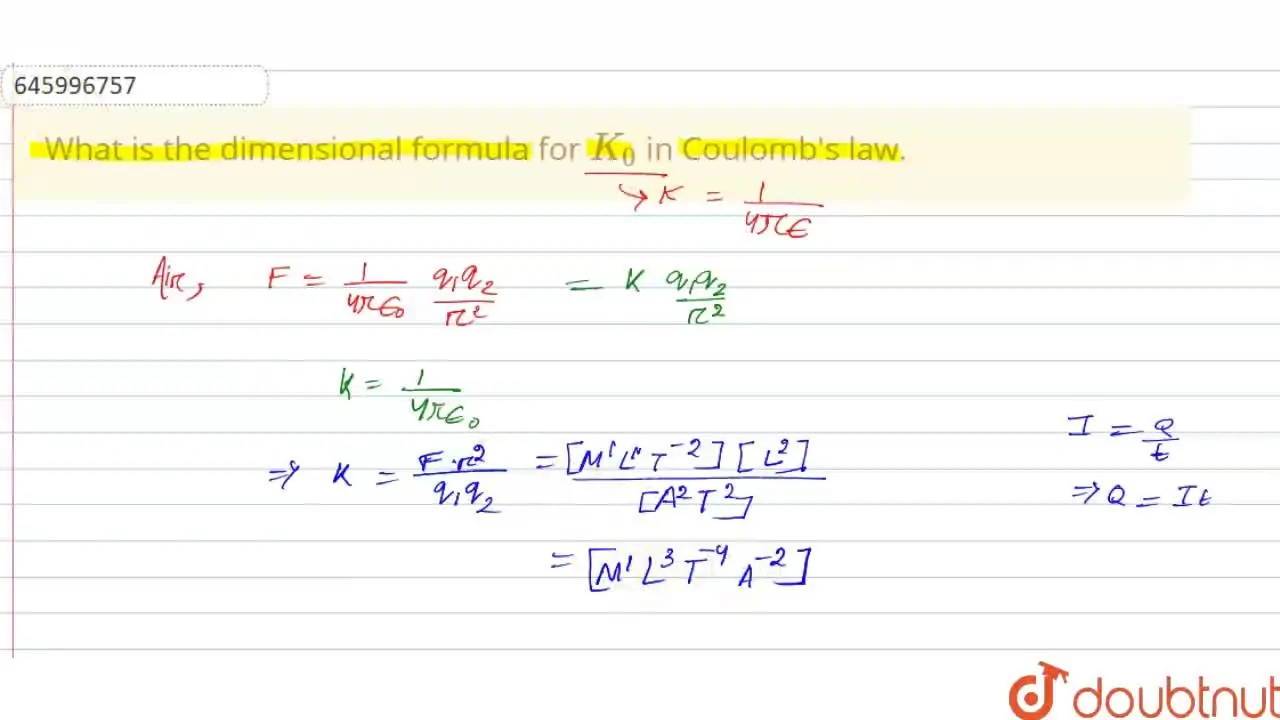 645996757
What is the dimensional formula for K₀ in Coulomb's law.
↳ K = 1/4πϵ
Air, F = 1/4πϵ₀ q₁q₂/r² = K q₁q₂/r²
K = 1/4πϵ₀
I = Q/t
⇒ K = F·r²/q₁q₂ = [M¹L¹T⁻²][L²]/[A²T²]
⇒ Q = It
= [M¹L³T⁻⁴A⁻²]
doubtnut